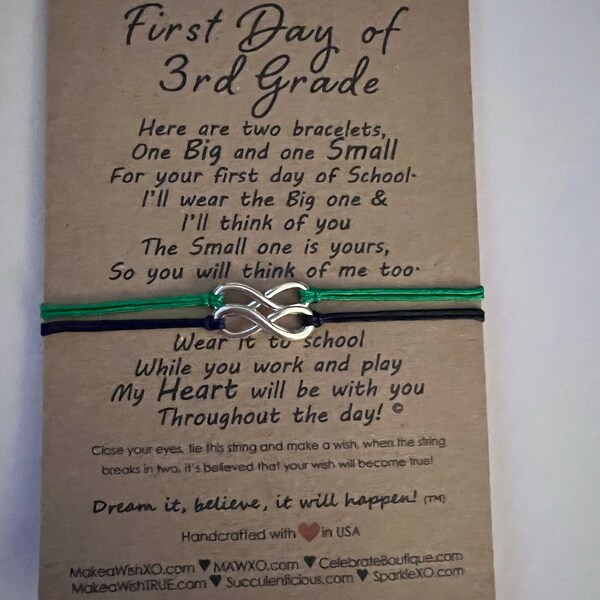 First Day of
3rd Grade
Here are two bracelets,
One Big and one Small
For your first day of School.
I'll wear the Big one &
I'll think of you
The Small one is yours,
So you will think of me too.
Wear it to school
While you work and play
My Heart will be with you
Throughout the day! ©
Close your eyes, tie this string and make a wish, when the string
breaks in two, it's believed that your wish will become true!
Dream it, believe, it will happen! (TM)
Handcrafted with ❤ in USA
MakeaWishXO.com ♥ MAWXO.com ♥ CelebrateBoutique.com
MakeaWishTRUE.com ♥ Succulentlicious.com ♥ SparkleXO.com